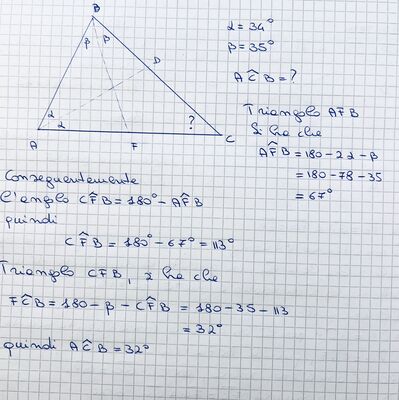 B
β β
D
α
α
?
A F C
α = 34°
β = 35°
AĈB = ?
Triangolo AFB
Si ha che
AF̂B = 180 - 2α - β
= 180 - 78 - 35
= 67°
Conseguentemente
l'angolo CF̂B = 180° - AF̂B
quindi
CF̂B = 180° - 67° = 113°
Triangolo CFB, si ha che
FĈB = 180 - β - CF̂B = 180 - 35 - 113
= 32°
quindi AĈB = 32°